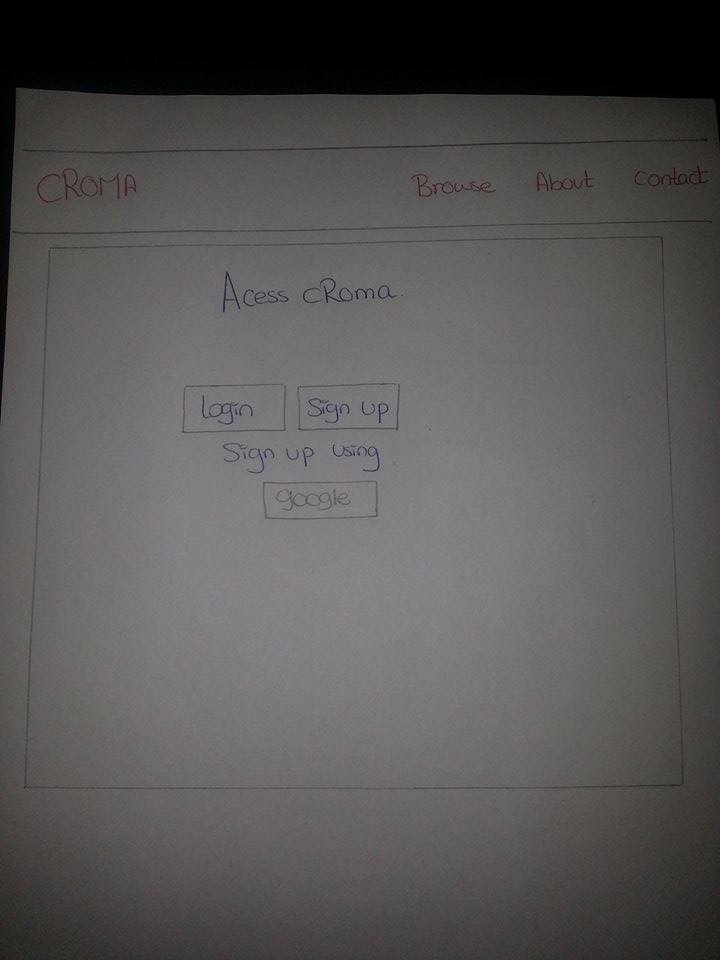 CROMA Browse About Contact
Acess cRoma.
Login Sign up
Sign up using
google